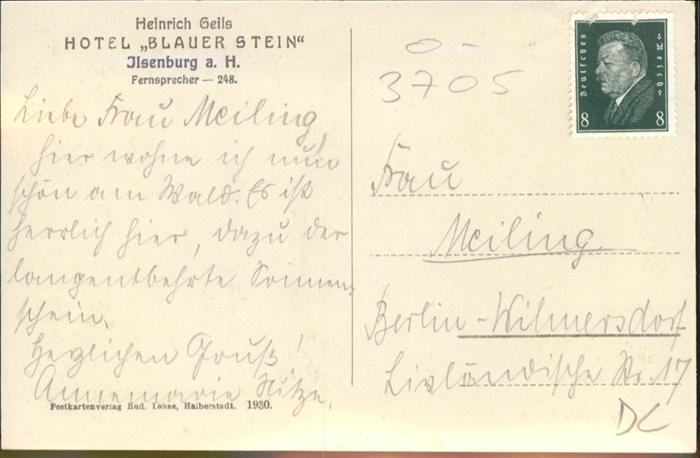 Heinrich Geils
HOTEL „BLAUER STEIN"
Ilsenburg a. H.
Fernsprecher — 248.
Liebe Frau Meiling!
hier wohne ich nun
schön am Wald. Es ist
herrlich hier, dazu der
langentbehrte Sonnen-
schein.
Herzlichen Gruß!
Annemarie
Postkartenverlag Rud. Lohse, Halberstadt. 1930.
0-
3705
Deutsches Reich
8 8
Frau
Meiling
Berlin-Wilmersdorf
Livländische Str. 17
DC